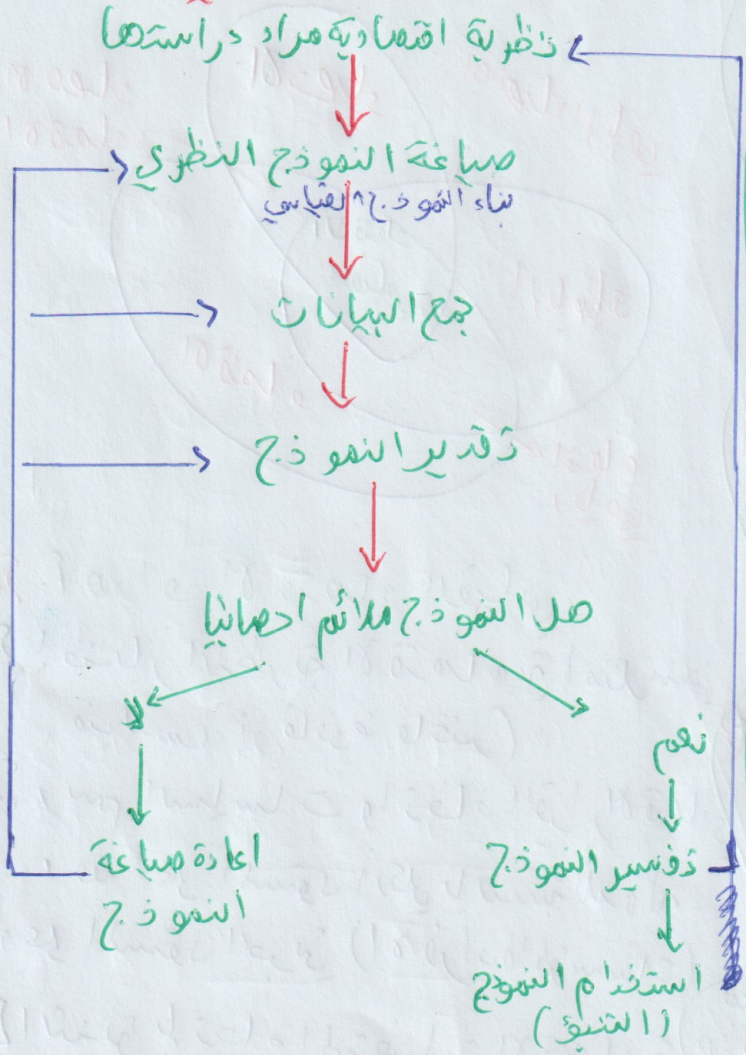 نظرية اقتصادية مراد دراستها
صياغة النموذج النظري
بناء النموذج القياسي
جمع البيانات
تقدير النموذج
هل النموذج ملائم احصائيا
لا
نعم
اعادة صياغة
النموذج
تفسير النموذج
استخدام النموذج
(التنبؤ)